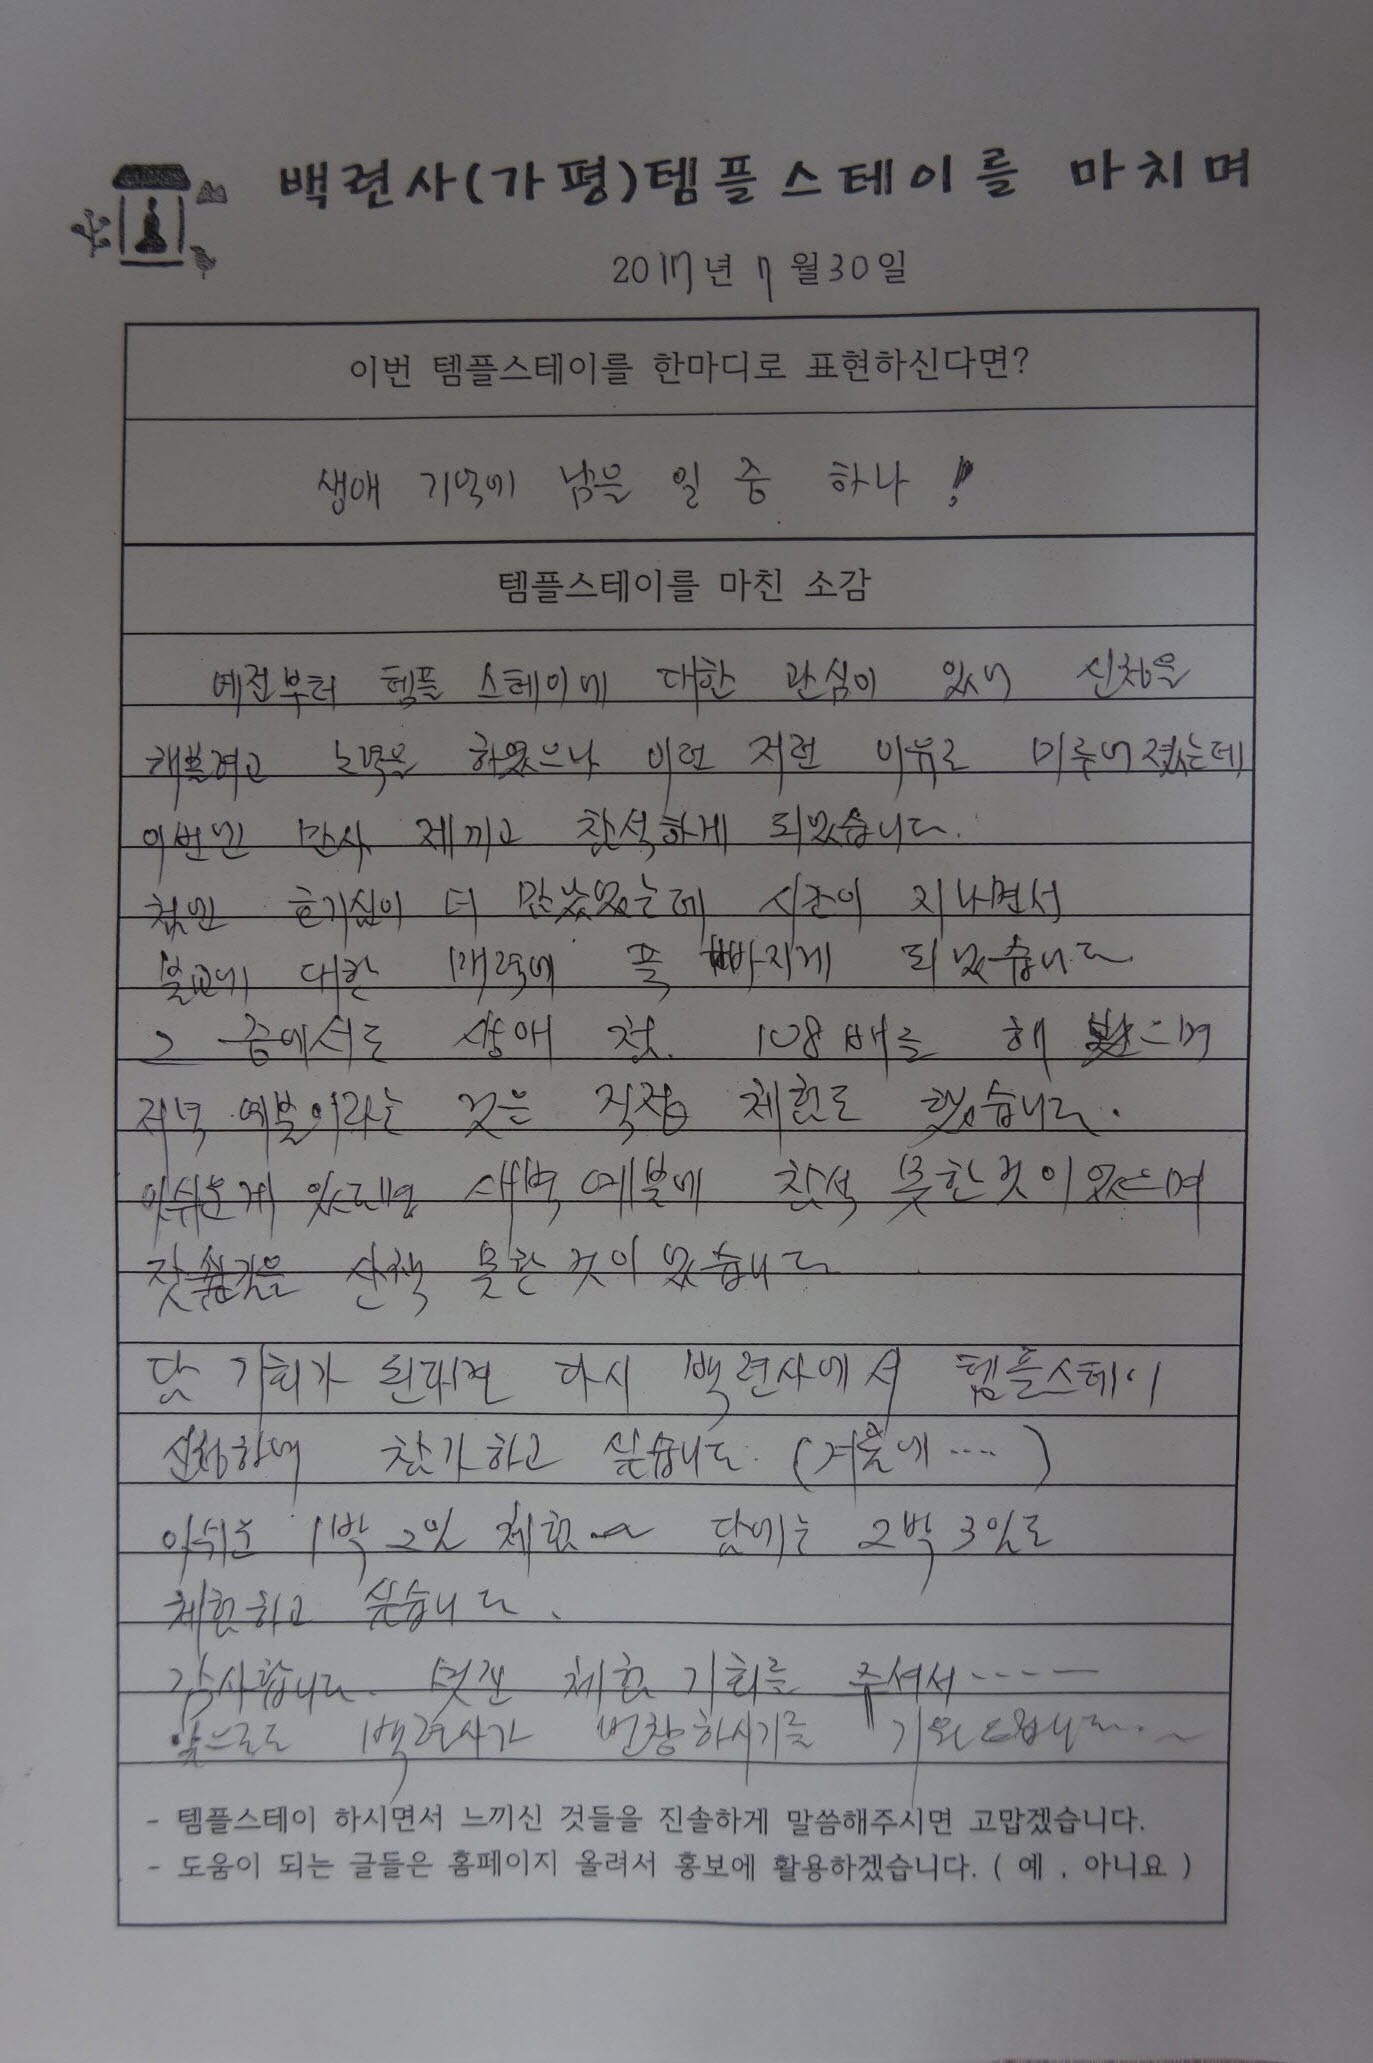 백련사(가평)템플스테이를 마치며
2017년 7월30일
이번 템플스테이를 한마디로 표현하신다면?
생애 기억에 남을 일 중 하나!
템플스테이를 마친 소감
예전부터 템플 스테이에 대한 관심이 있어 신청을
해볼려고 노력은 하였으나 이런 저런 이유로 미루어졌는데
이번엔 만사 제끼고 참석하게 되었습니다.
첨엔 호기심이 더 많았었는데 시간이 지나면서
불교에 대한 매력에 푹 빠지게 되었습니다.
그 중에서도 생애 첫 108배를 해 봤으며
저녁 예불이라는 것은 직접 체험도 했습니다.
아쉬운게 있다면 새벽 예불에 참석 못한것이 있으며
잣숲길을 산책 못한 것이 있습니다
담 기회가 된다면 다시 백련사에서 템플스테이
신청하여 참가하고 싶습니다. (겨울에 ....)
아쉬운 1박 2일 체험~ 담에는 2박 3일로
체험하고 싶습니다.
감사합니다. 멋진 체험 기회를 주셔서-----
앞으로도 백련사가 번창하시기를 기원드립니다..~
- 템플스테이 하시면서 느끼신 것들을 진솔하게 말씀해주시면 고맙겠습니다.
- 도움이 되는 글들은 홈페이지 올려서 홍보에 활용하겠습니다. ( 예 , 아니요 )